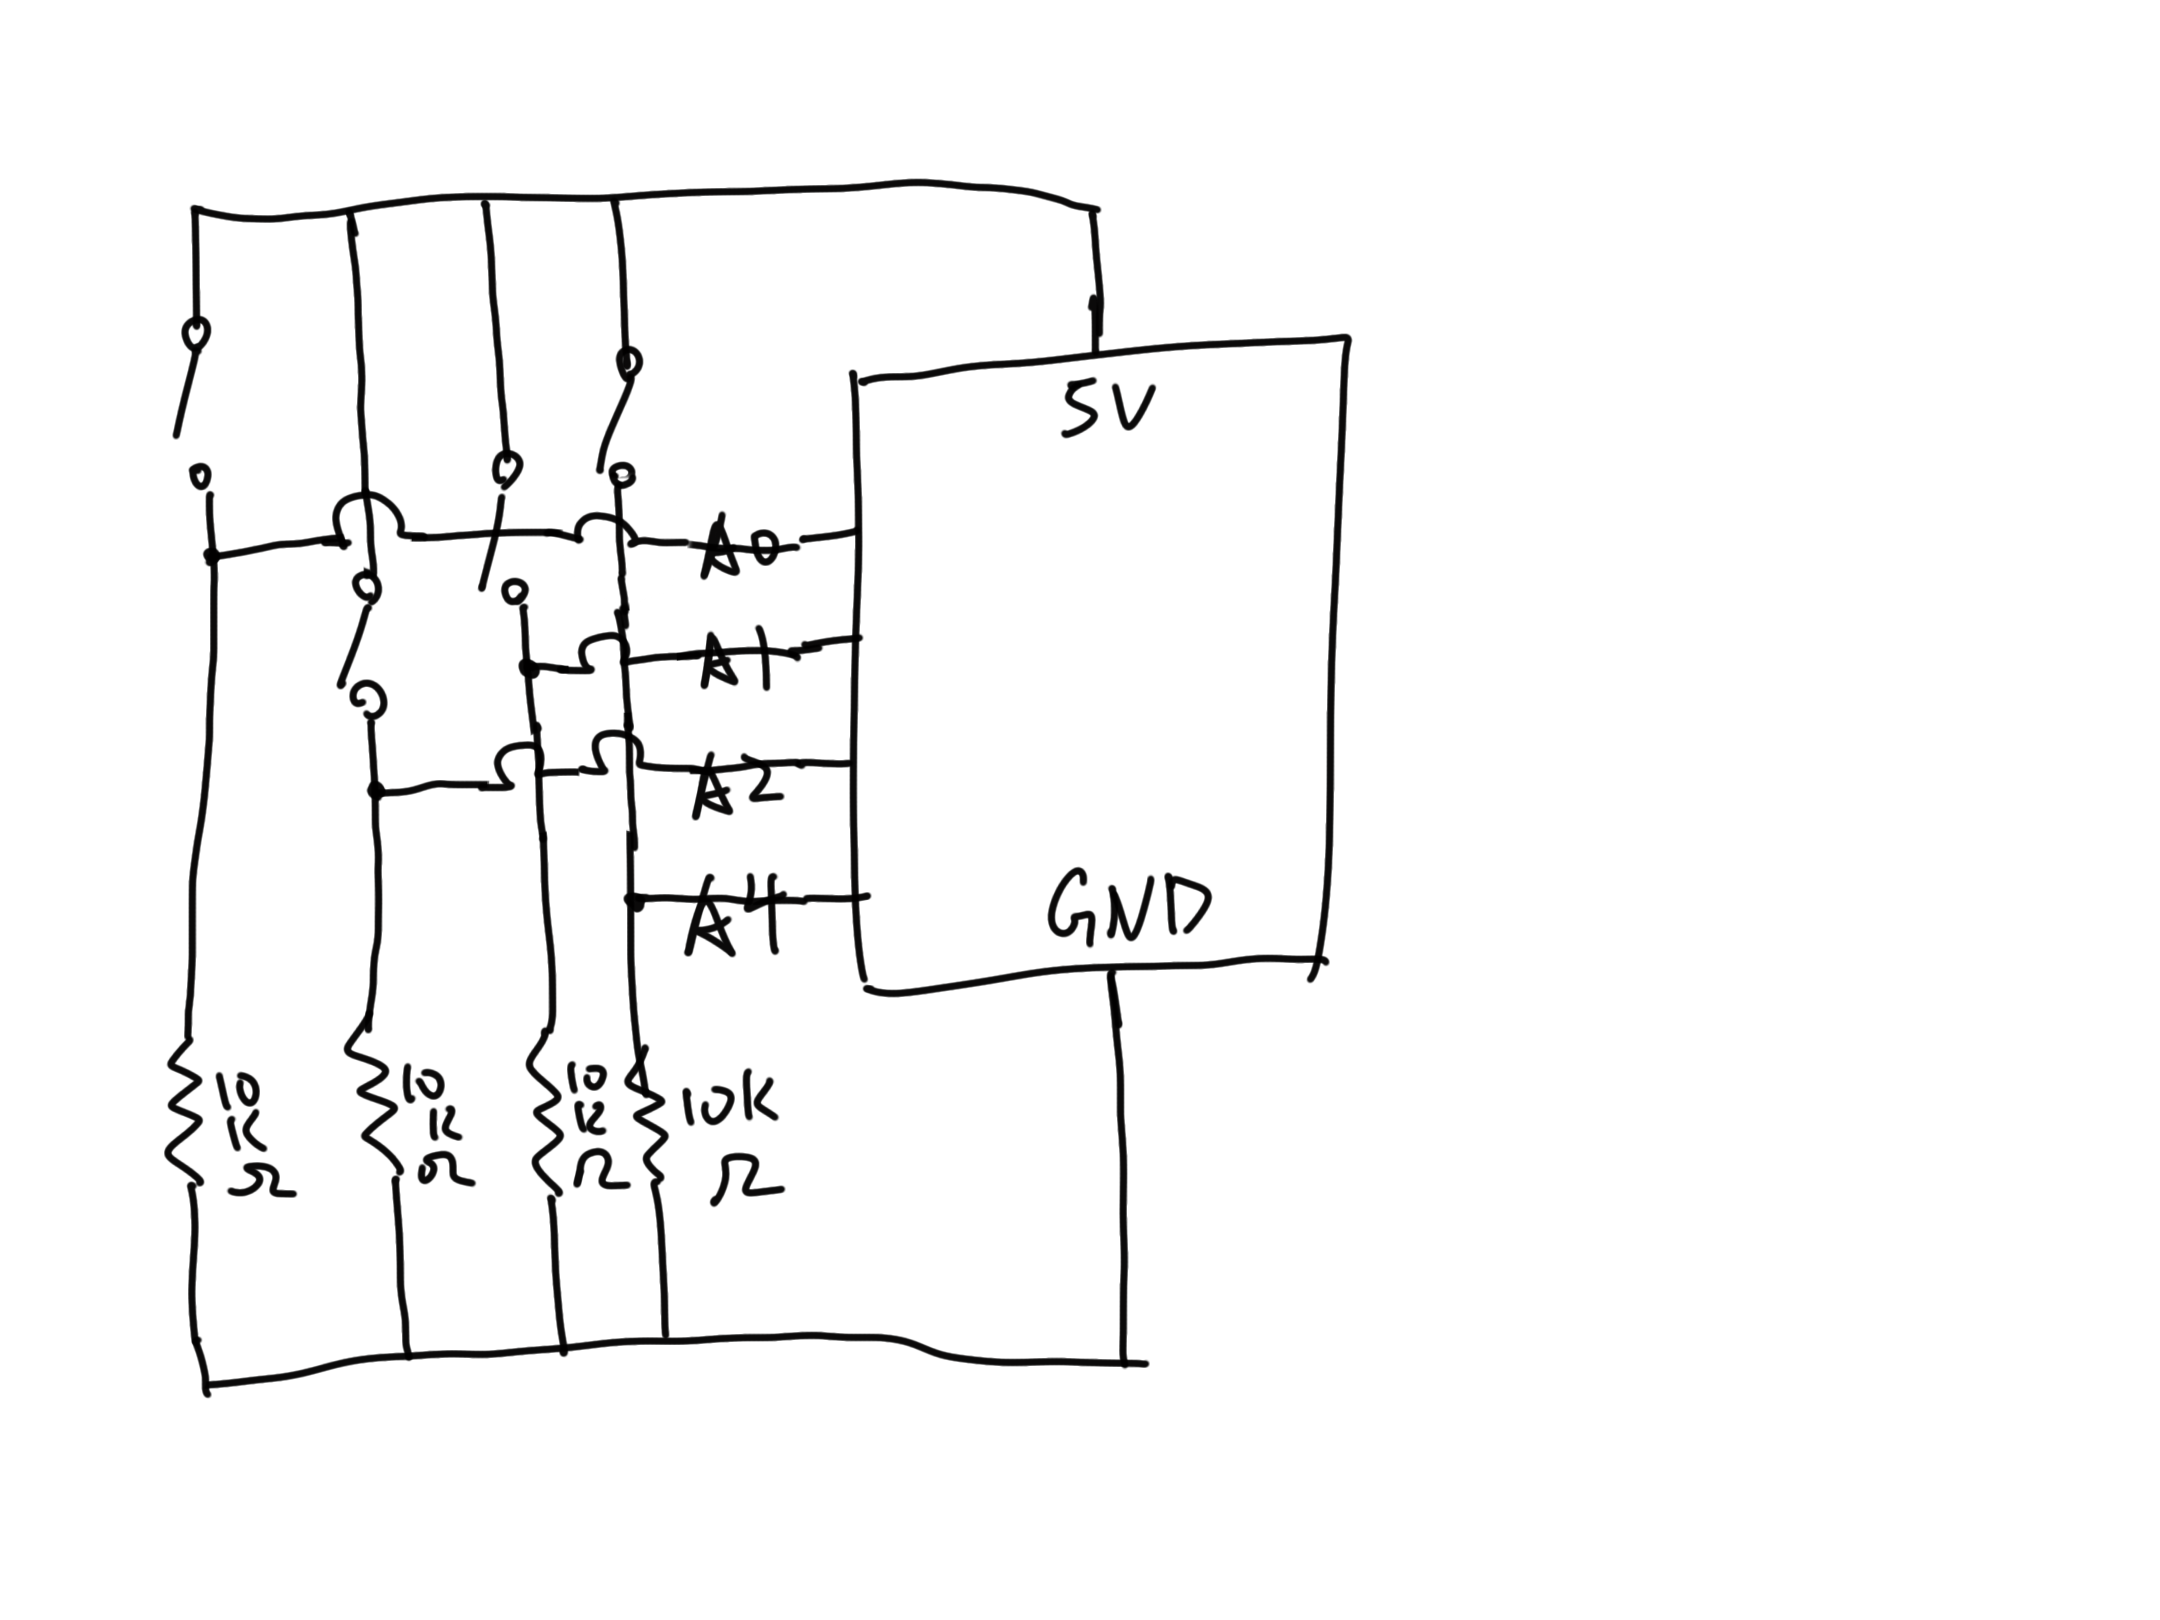 5V
A0
A1
A2
A4
GND
10
K
Ω
10
K
Ω
10
K
Ω
10K
Ω